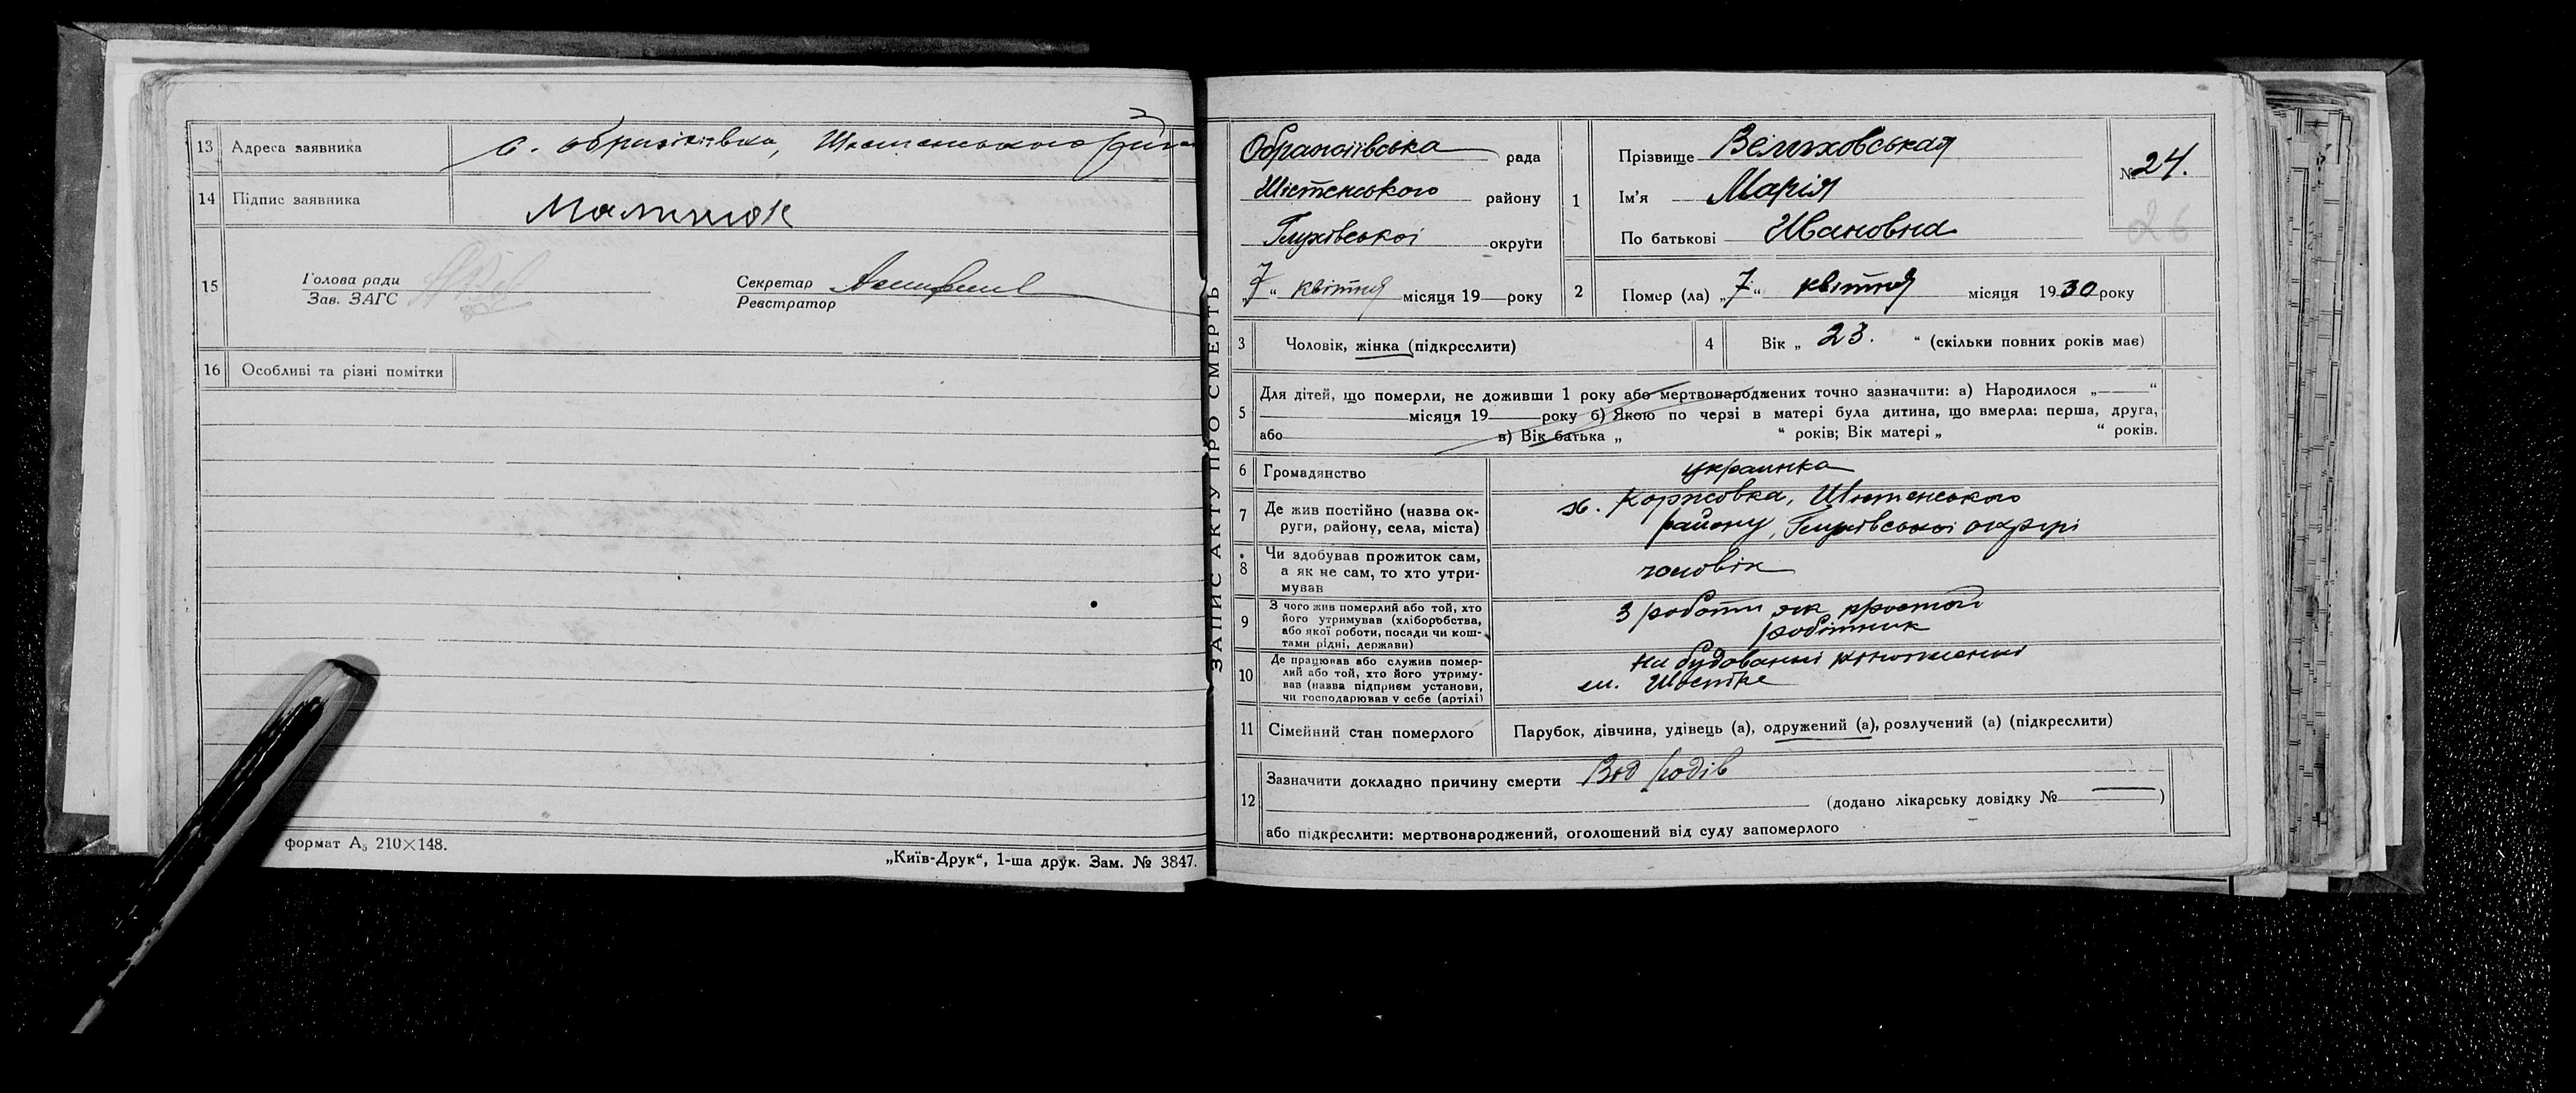 13 Адреса заявника с. Ображіївка, Шостенського району
14 Підпис заявника Малинок
15 Голова ради
Зав. ЗАГС
Секретар
Реєстратор
16 Особливі та різні помітки
формат А5 210×148.
„Київ-Друк“, 1-ша друк. Зам. № 3847.
ЗАПИС АКТУ ПРО СМЕРТЬ
Ображіївська рада
Шостенського району
Глухівської округи
„7“ квітня місяця 19 року
1 Прізвище Веліховськая
Ім'я Марія
По батькові Ивановна
№ 24.
26
2 Помер (ла) „7“ квітня місяця 1930 року
3 Чоловік, жінка (підкреслити)
4 Вік „23.“ (скільки повних років має)
5 Для дітей, що померли, не доживши 1 року або мертвонароджених точно зазначити: а) Народилося „ “
місяця 19 року б) Якою по черзі в матері була дитина, що вмерла: перша, друга,
або в) Вік батька „ “ років; Вік матері „ “ років.
6 Громадянство украинка
7 Де жив постійно (назва ок-
руги, району, села, міста)
х. Коржовка, Шостенського
району, Глухівської округи
8 Чи здобував прожиток сам,
а як не сам, то хто утри-
мував
чоловік
9 З чого жив померлий або той, хто
його утримував (хліборобства,
або якої роботи, посади чи кош-
тами рідні, держави)
З роботи як простой
робітник
10 Де працював або служив помер-
лий або той, хто його утриму-
вав (назва підприєм установи,
чи господарював у себе (артілі)
на будованні
м. Шостке
11 Сімейний стан померлого Парубок, дівчина, удівець (а), одружений (а), розлучений (а) (підкреслити)
12 Зазначити докладно причину смерти Вод родів
(додано лікарську довідку № )
або підкреслити: мертвонароджений, оголошений від суду запомерлого